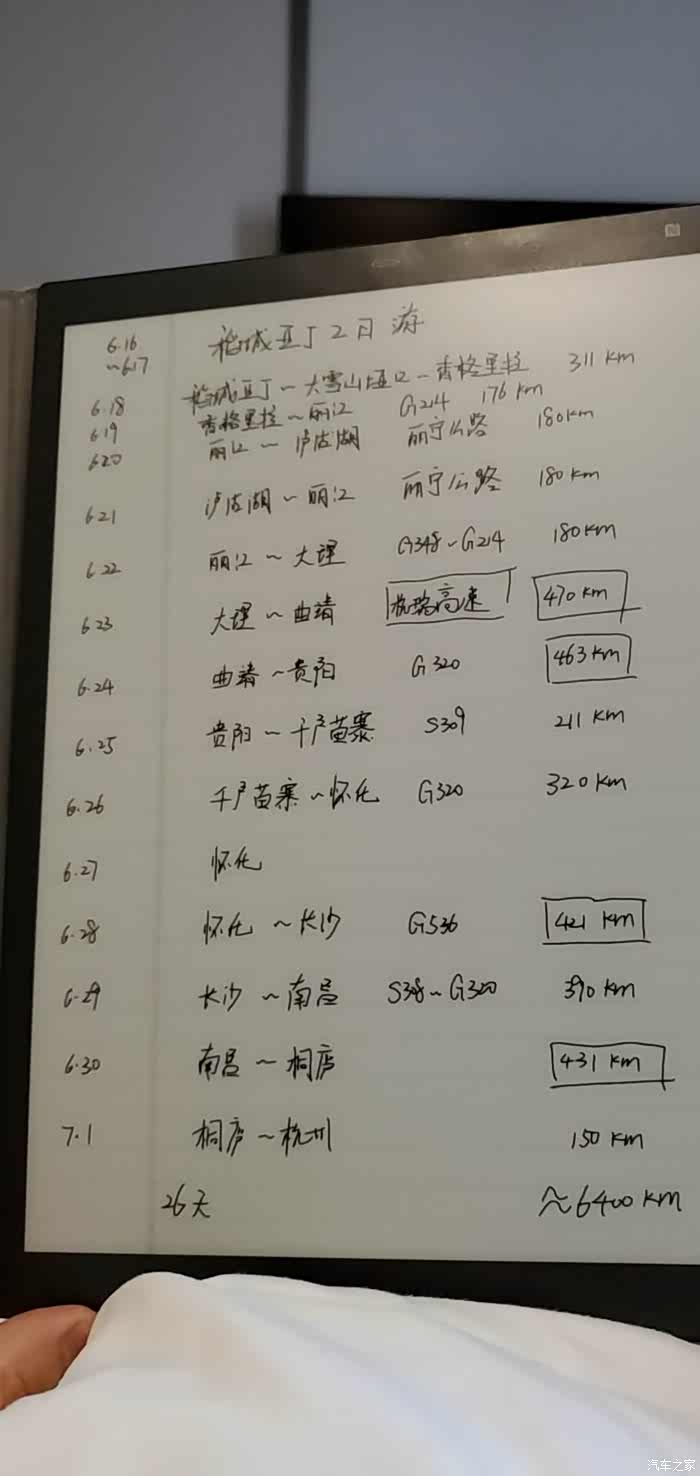 6.16 ~6.17 稻城亚丁2日游
6.18 稻城亚丁~大雪山垭口~香格里拉 311 km
6.19 香格里拉~丽江 G214 176 km
6.20 丽江~泸沽湖 丽宁公路 180km
6.21 泸沽湖~丽江 丽宁公路 180 km
6.22 丽江~大理 G348~G214 180km
6.23 大理~曲靖 杭瑞高速 470 km
6.24 曲靖~贵阳 G320 463 km
6.25 贵阳~千户苗寨 S309 211 km
6.26 千户苗寨~怀化 G320 320 km
6.27 怀化
6.28 怀化~长沙 G536 421 km
6.29 长沙~南昌 S38~G320 390 km
6.30 南昌~桐庐 431 km
7.1 桐庐~杭州 150 km
26天 ≈6400 km
汽车之家